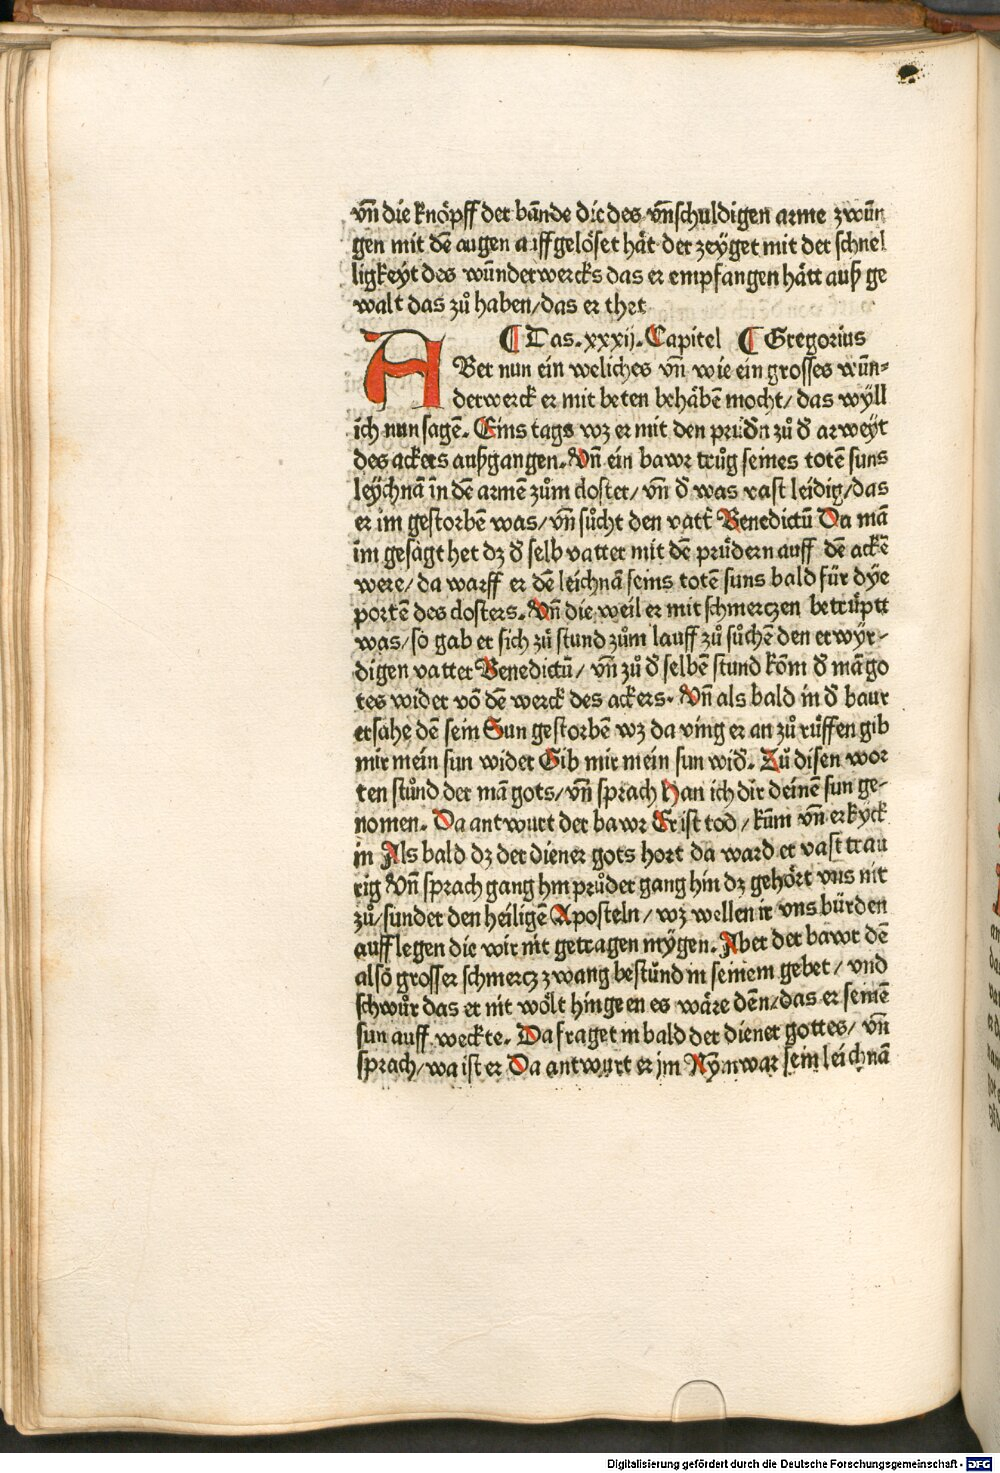 vñ die knöpff der bānde die des vñschuldigen arme zwūn
gen mit dē augen auffgelöset hät der zeÿget mit der schnel
ligkeÿt des wūnderwercks das er empfangen hätt auß ge
walt das zů haben/das er thet
¶ Das .xxxij. Capitel ¶ Gregorius
ABer nun ein weliches vñ wie ein grosses wūn⸗
derwerck er mit beten behäbē mocht/ das wÿll
ich nun sagē. Eins tags wz er mit den prüdn zů đ arweÿt
des ackers außgangen. Vñ ein bawr trůg seines totē suns
leÿchnā in dē armē zům closter/ vñ đ was vast leidig/das
er im gestorbē was/vñ sůcht den vatt̄ Benedictū Da mā
im gesagt het dz đ selb vatter mit dē prüdern auff dē ackē
were/da warff er dē leichnā seins totē suns bald für dÿe
portē des closters. Vñ die weil er mit schmerczen betrüptt
was/so gab er sich zů stund zům lauff zů sůchē den erwÿr⸗
digen vatter Benedictū/ vñ zů đ selbē stund kōm đ mā go
tes wider vō dē werck des ackers. Vñ als bald in đ baur
ersahe dē sein Sun gestorbē wz da ving er an zů rüffen gib
mir mein sun wider Gib mir mein sun wiđ. Zů disen wor
ten stůnd der mā gots/vñ sprach Han ich dir deinē sun ge⸗
nomen. Da antwurt der bawr Er ist tod/kūm vñ erkÿck
in Als bald dz der diener gots hort da ward er vast trau
rig Vñ sprach gang hin průder gang hin dz gehört vns nit
zů/sunder den heiligē Aposteln/wz wellen ir vns bürden
auff legen die wir nit getragen mÿgen. Aber der bawr dē
also grosser schmercz zwang bestůnd in seinem gebet/ vnd
schwůr das er nit wölt hin geen es wäre dēn/das er seinē
sun auff weckte. Da fraget in bald der diener gottes/ vñ
sprach/wa ist er Da antwurt er im Nÿm war sein leichnā
Digitalisierung gefördert durch die Deutsche Forschungsgemeinschaft - DFG